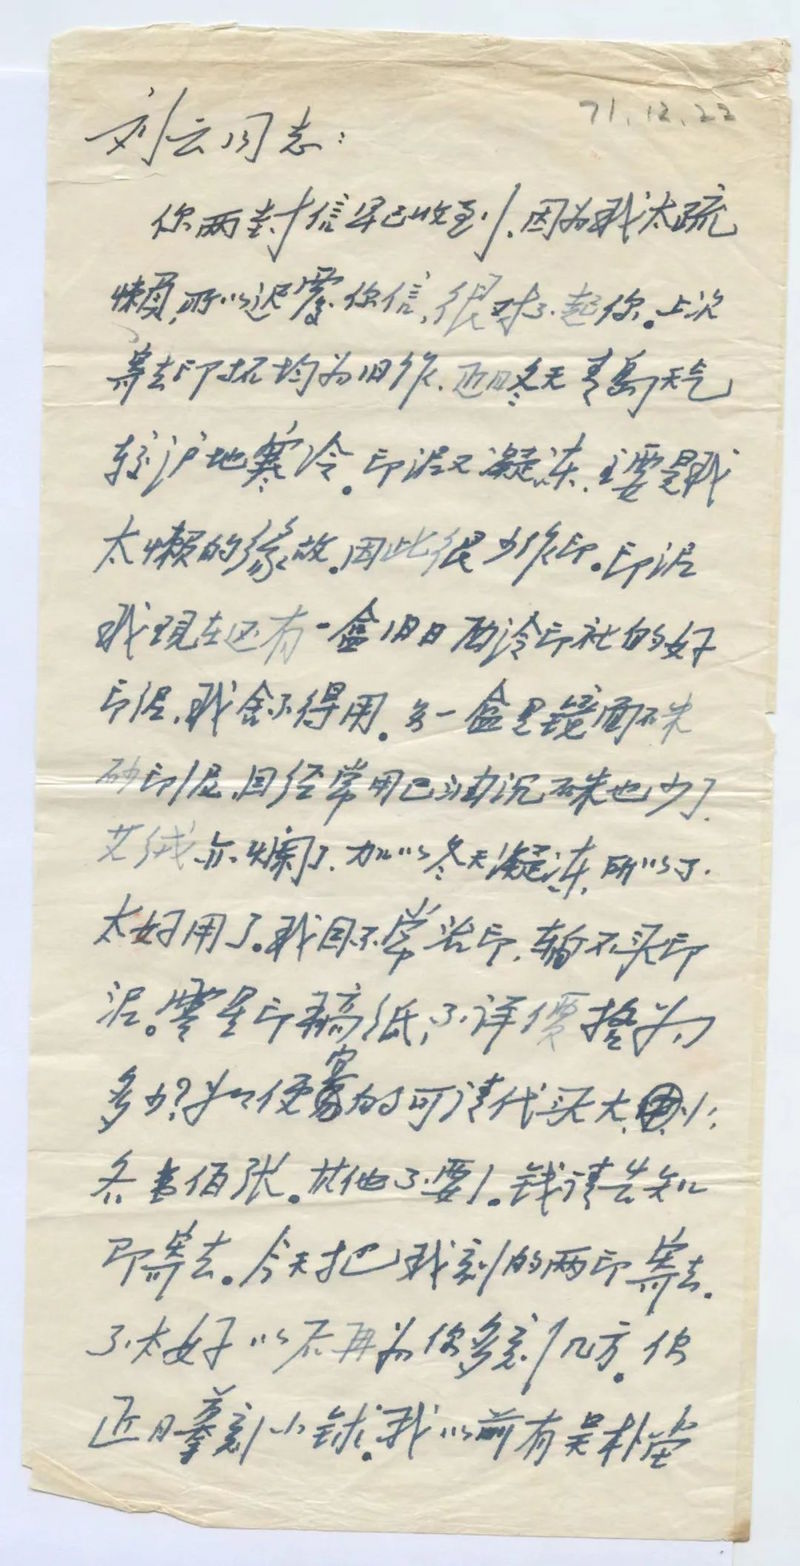 71.12.22
刘云同志：
你两封信早已收到，因为我太疏
懒，所以迟覆你信，很对不起你。上次
寄去印坯均为旧作，近日冬天青岛天气
较沪地寒冷。印泥又凝冻，主要是我
太懒的缘故。因此很少作印。印泥
我现在还有一盒旧日西泠印社的好
印泥，我舍不得用。另一盒是镜面硃
砂印泥，因经常用已油沉硃也少了，
艾绒亦烂了，加以冬天凝冻，所以不
太好用了。我因不常治印，暂不买印
泥。零星印稿纸，不详价格为
多少？如便宜的可请代买大、小
各壹佰张。其他不要。钱请告知
即寄去。今天把我刻的两印寄去。
不太好以后再为你多刻几方。你
近日摹刻小鉥。我以前有吴朴堂